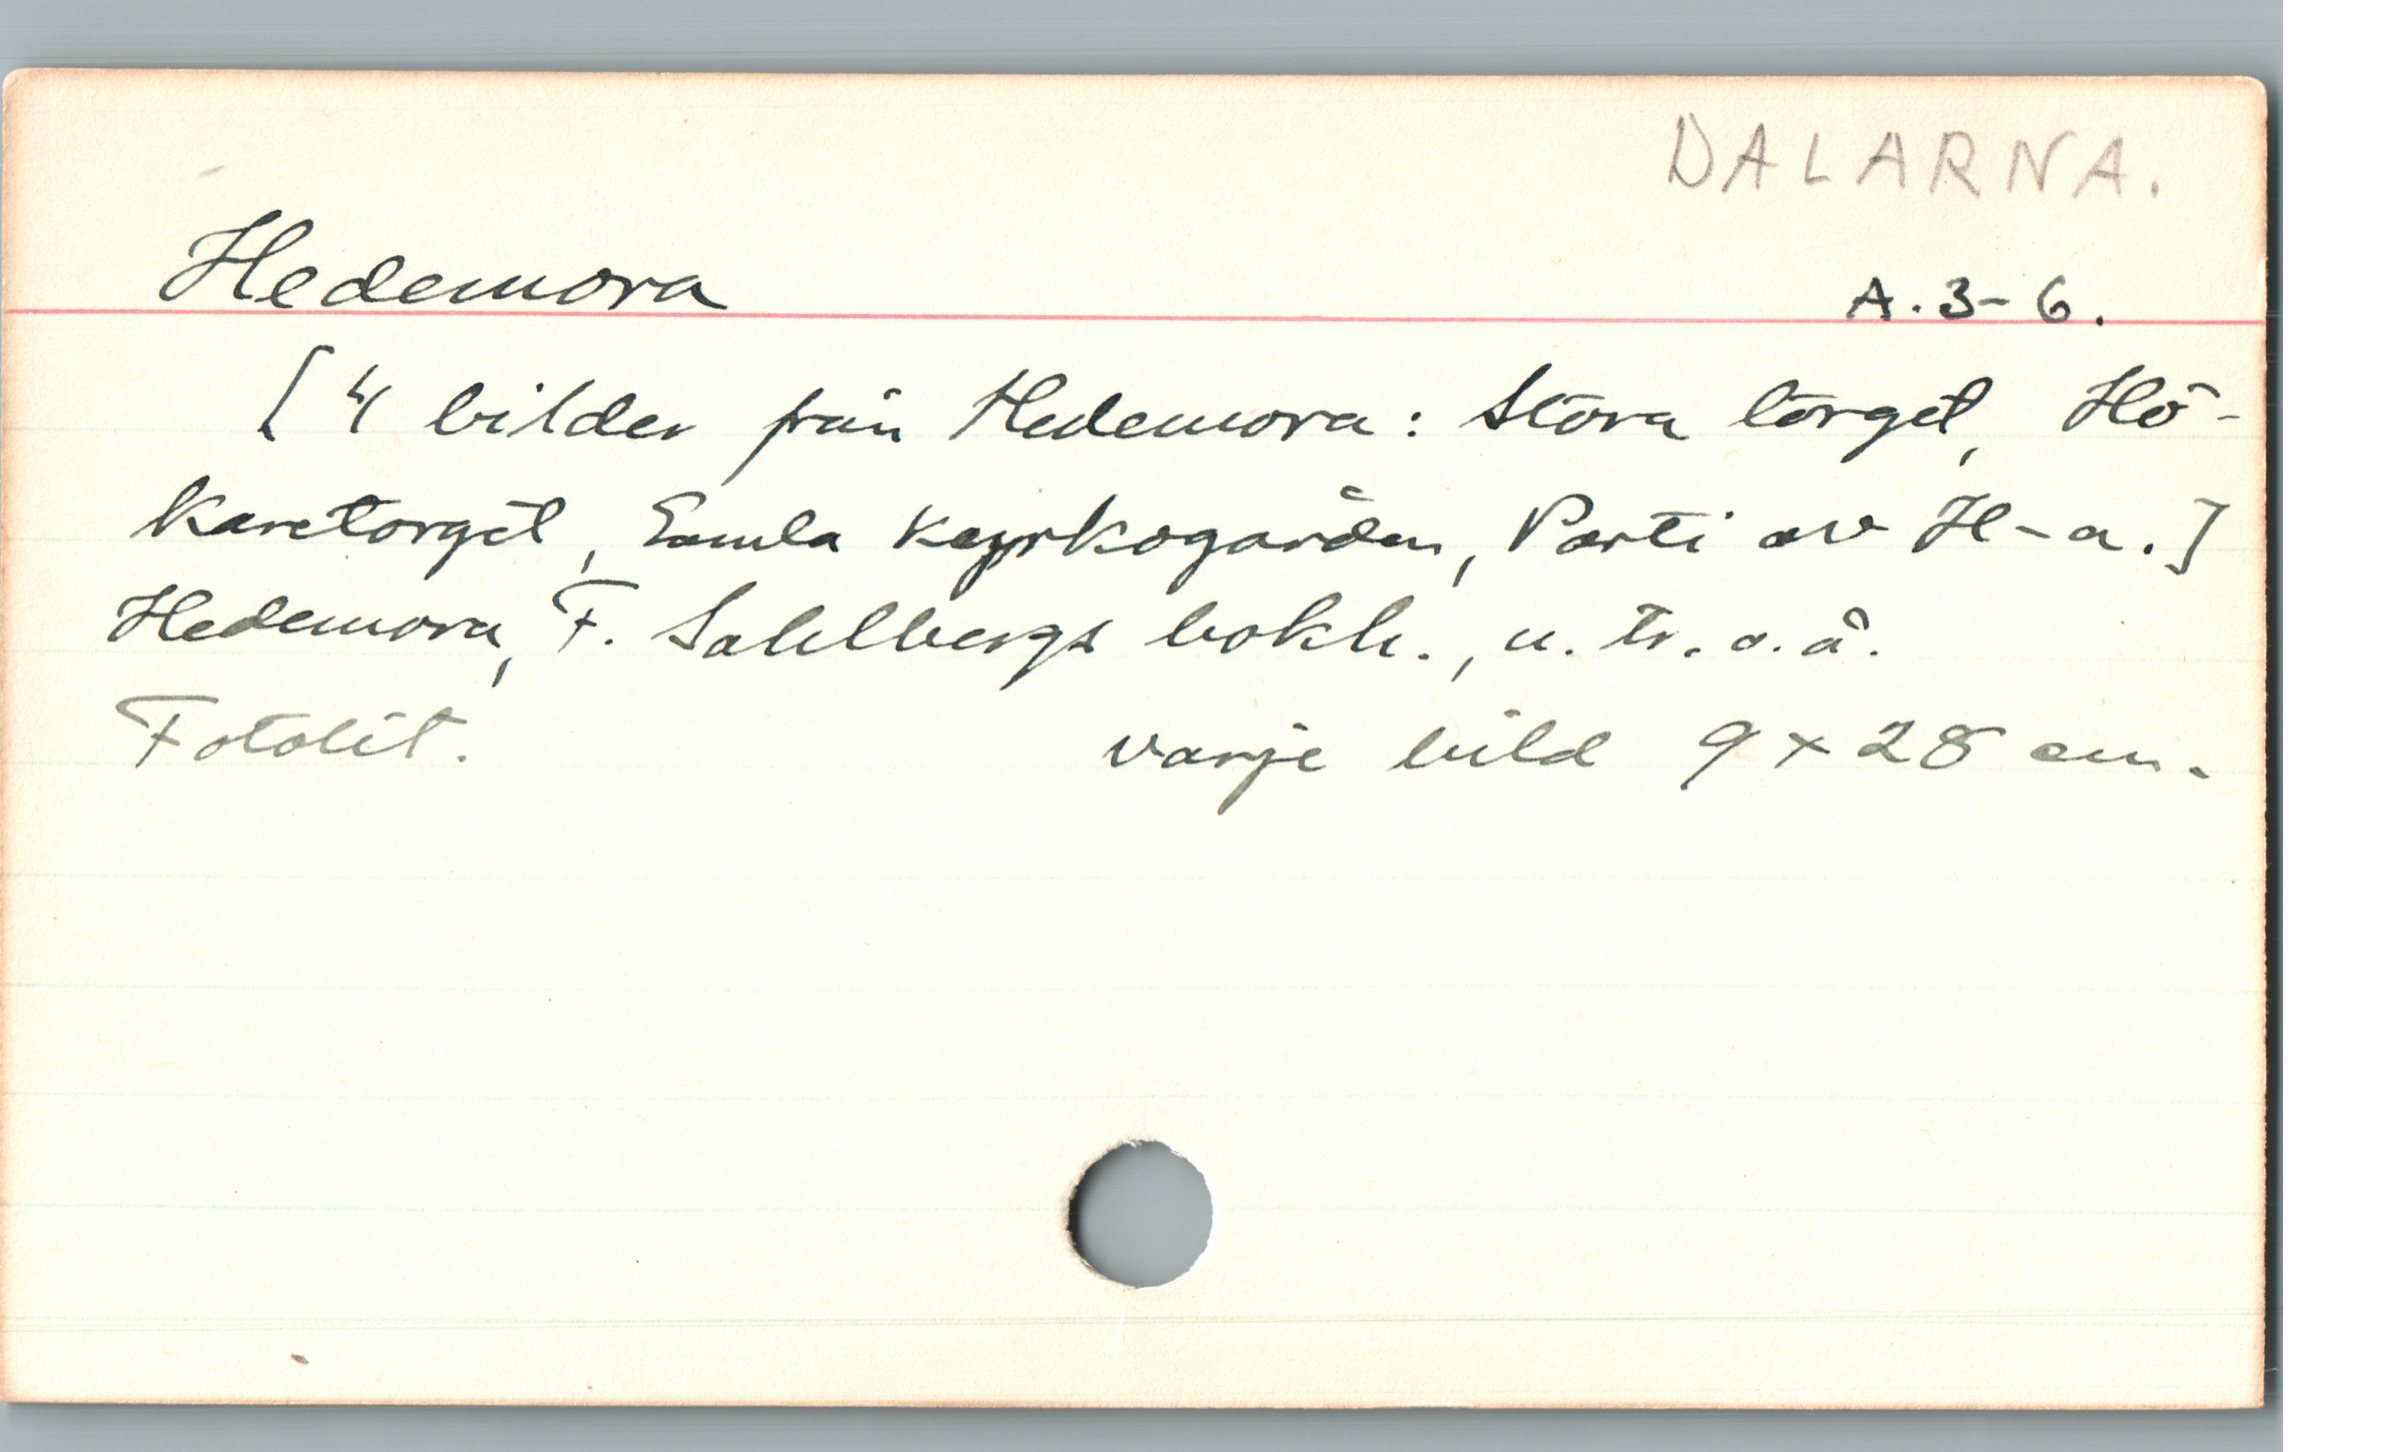 DALARNA.
Hedemora
A. 3-6.
[4 bilder från Hedemora: Stora torget, Hö-
karetorget, Gamla kyrkogården, Parti av H-a.]
Hedemora, F. Sahlbergs bokh., u. tr. o. å.
Fotolit. varje bild 9 x 28 cm.